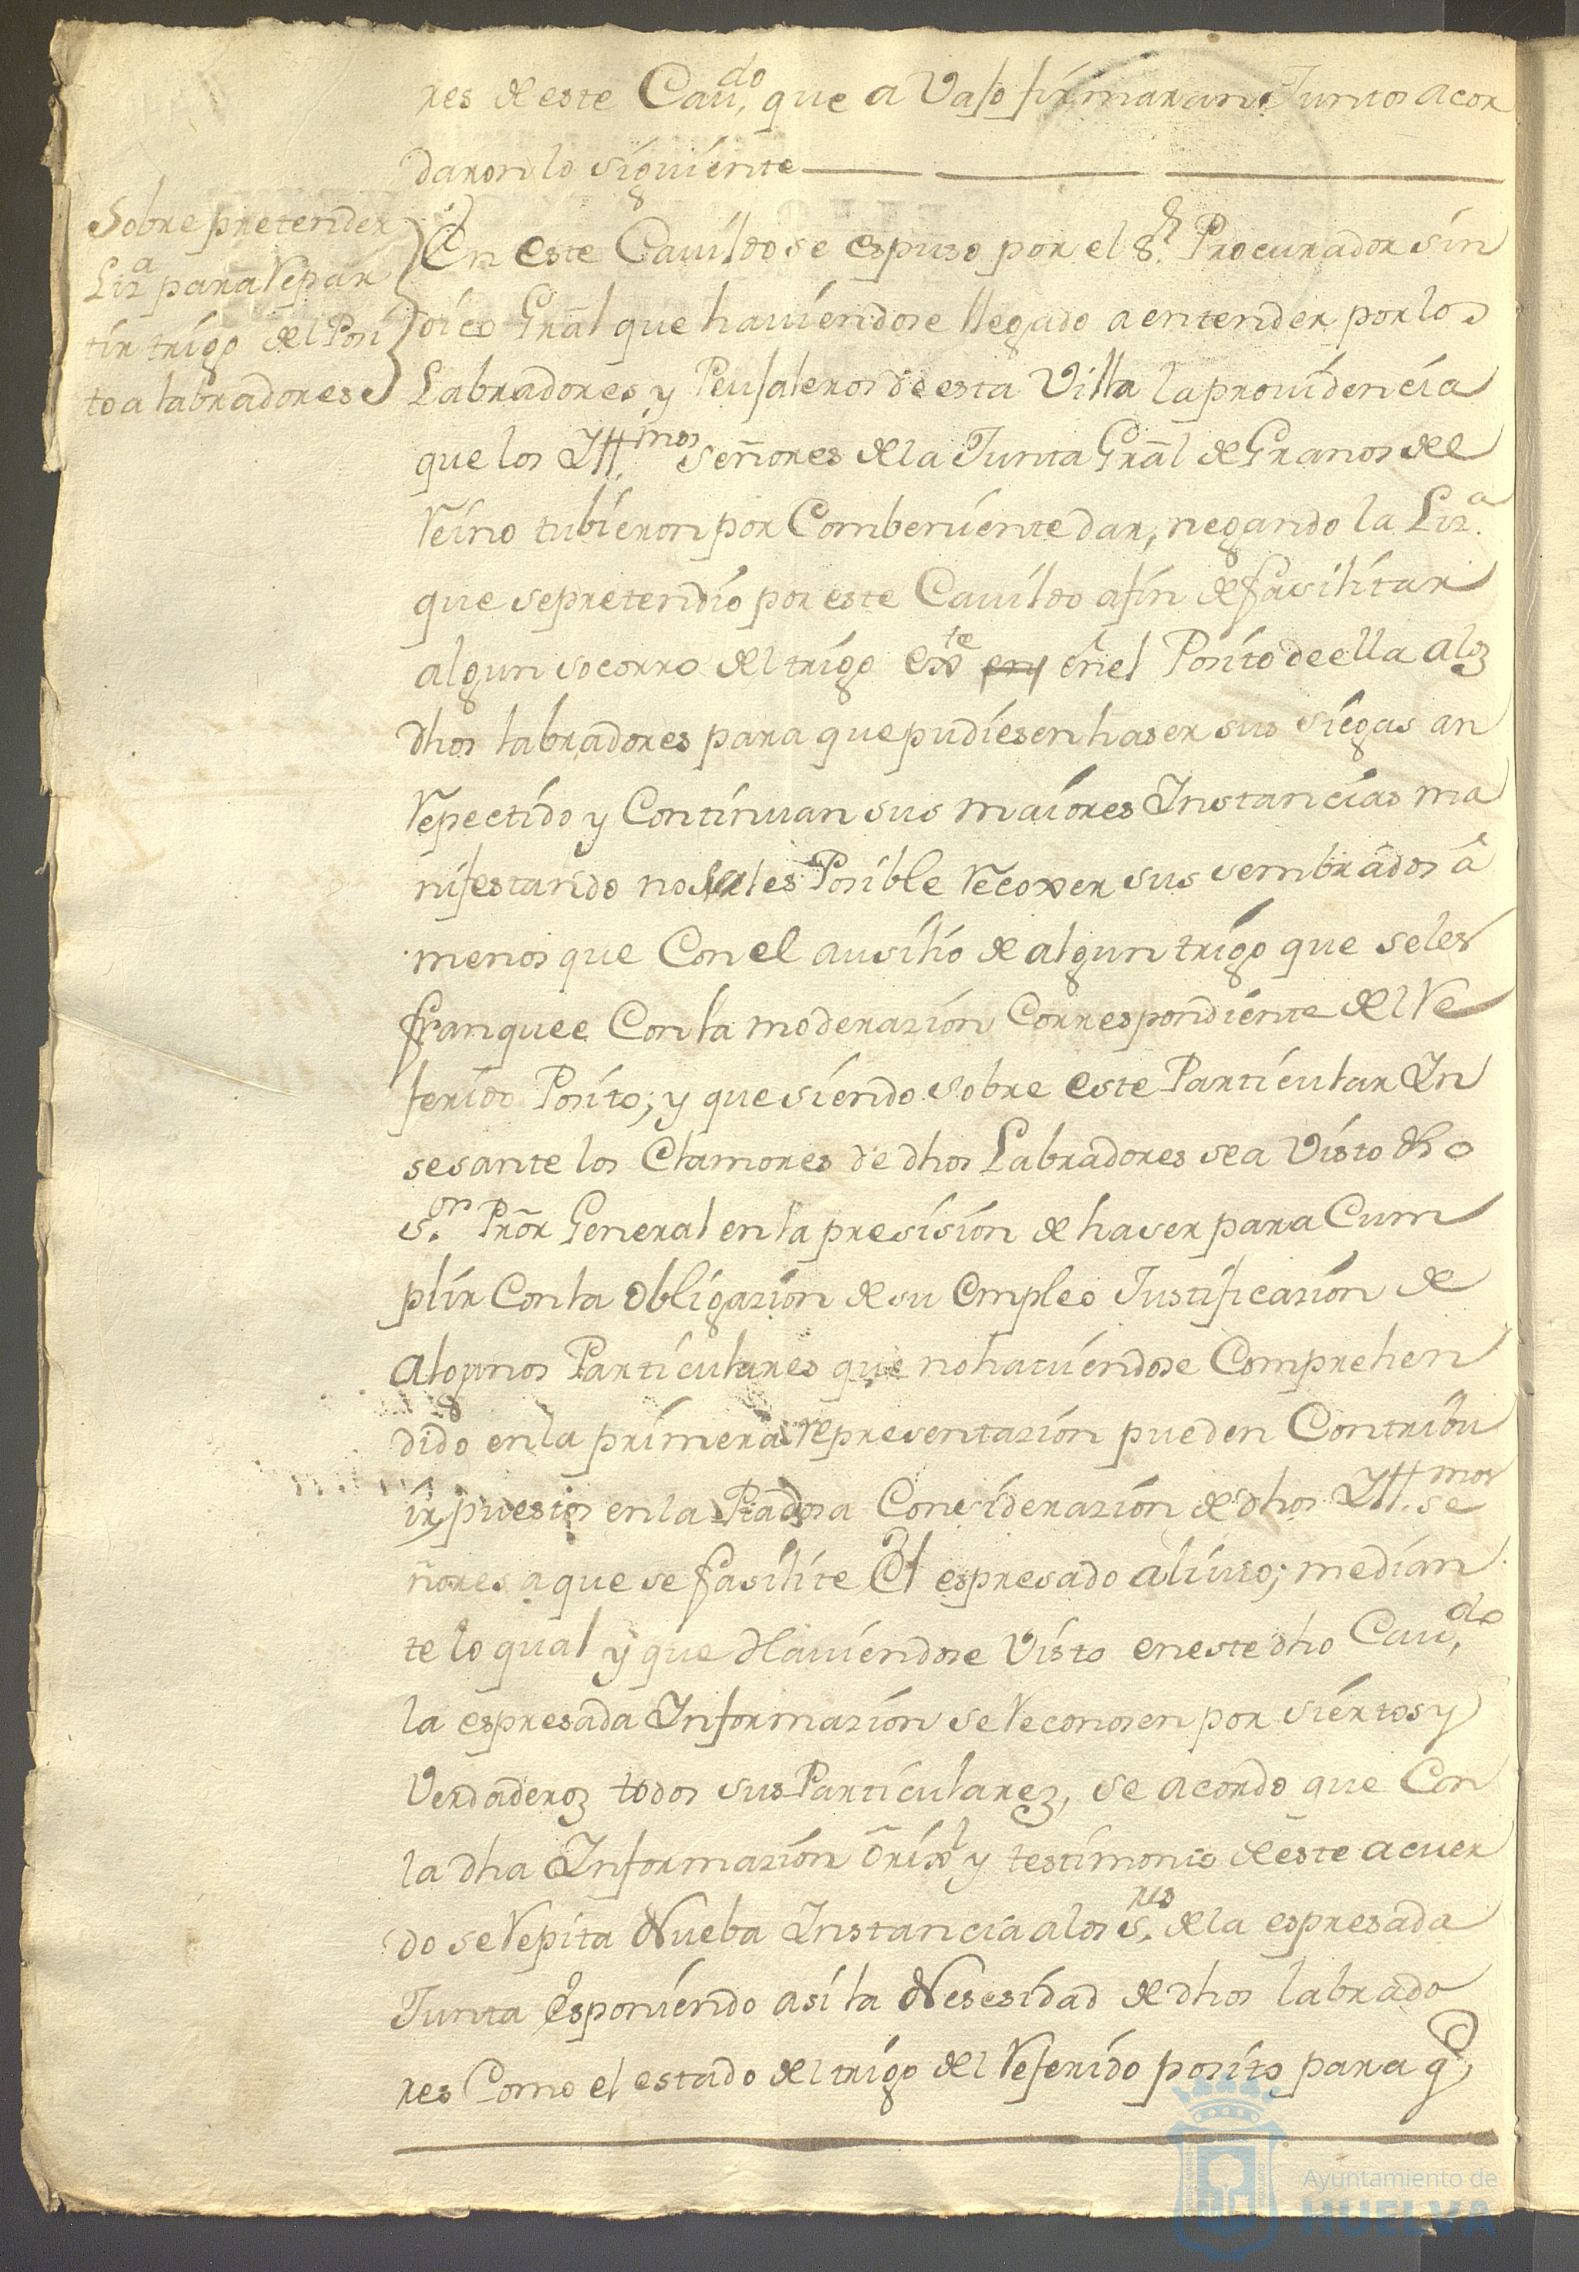 res de este Cauᵈᵒ. que a Vaso firmaran Juntos acor
daron lo siguiente
Sobre pretender
Lizª para Repar
tir trigo del Posi
to a labradores
En este Cauildo se espuso por el Sʳ. Procurador sin
dico Grãl que hauiendose llegado a entender por los
Labradores y Peujaleros de esta Villa la providencia
que los Yllᵐᵒˢ Señores de la Junta Grãl de Granos del
Reino tubieron por Combeniente dar, negando la Lizª.
que se pretendio por este Cauildo a fin de fasilitar
algun socorro del trigo Exᵗᵉ en el Posito de ella a los
dhos labradores para que pudiesen haser sus siegas an
Repectido y Continuan sus maiores Instancias ma
nifestando no serles Posible Recoxer sus sembrados â
menos que Con el ausilio de algun trigo que se les
franquee Con la moderazion Correspondiente del Re
ferido Posito; y que siendo sobre este Particular In
sesante los Clamores de dhos Labradores se a Visto dho
Sᵒʳ. Prõr General en la presision de haser para Cum
plir Con la Obligazion de su empleo Justificazion de
algunos Particulares que no hauiendose Comprehen
dido en la primera representazion pueden Contribu
ir puestos en la Piadosa Considerazion de dhos Yllᵐᵒˢ. Se
ñores a que se fasilite El espresado alivio; median
te lo qual y que Hauiendose Visto en este dho Cauᵈᵒ.
la espresada Informazion se Reconosen por siertos y
Verdaderos todos sus Particulares, se acordo que Con
la dha Informazion Orixˡ y testimonio de este acuer
do se Repita Nueba Instancia a los Sʳᵉˢ. de la espresada
Junta Esponiendo asi la Nesesidad de dhos labrado
res Como el estado del trigo del Referido posito para qᵉ
Ayuntamiento de
HUELVA